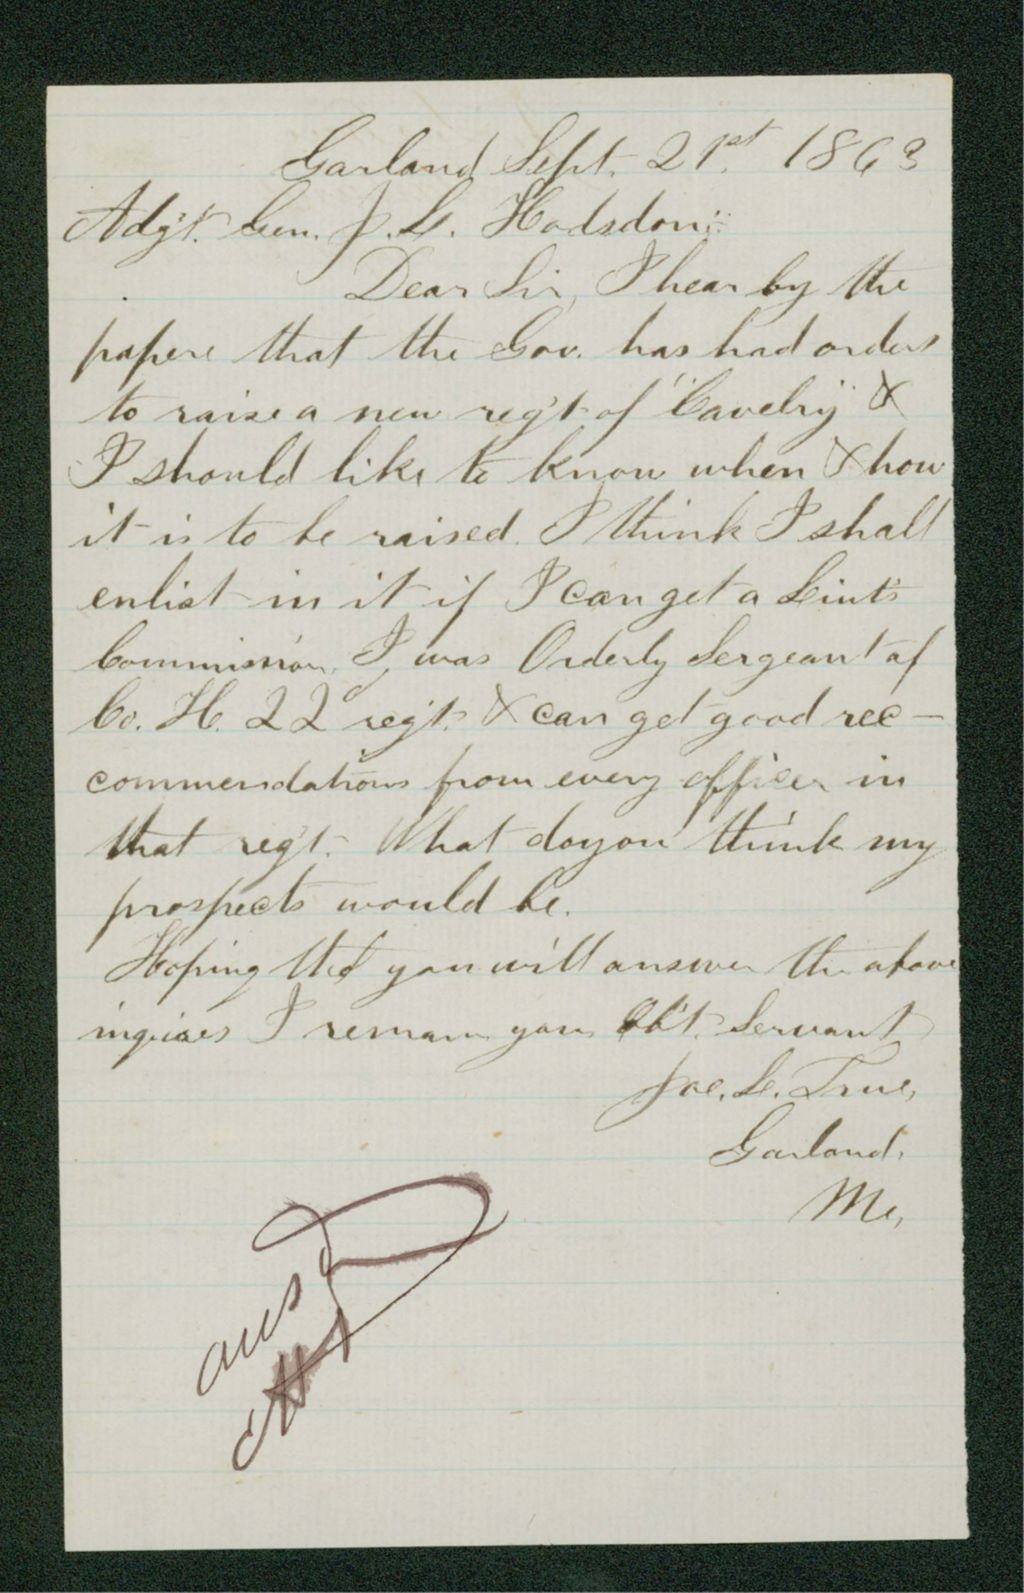 Garland Sept. 21st. 1863
Adg't. Gen. J. L. Hodsdon;
Dear Sir, I hear by the
papers that the Gov. has had orders
to raise a new reg't of "Cavelry" &
I should like to know when & how
it is to be raised. I think I shall
enlist in it if I can get a Leint's
Commission. I, was Orderly Sergeant of
Co. H. 22d reg't. & can get good rec-
commendations from every officer in
that reg't. What do you think my
prospects would be.
Hoping that you will answer the above
inquires I remain your Ob't. Servant
Joe. L. True,
Garland,
Me,
ansd